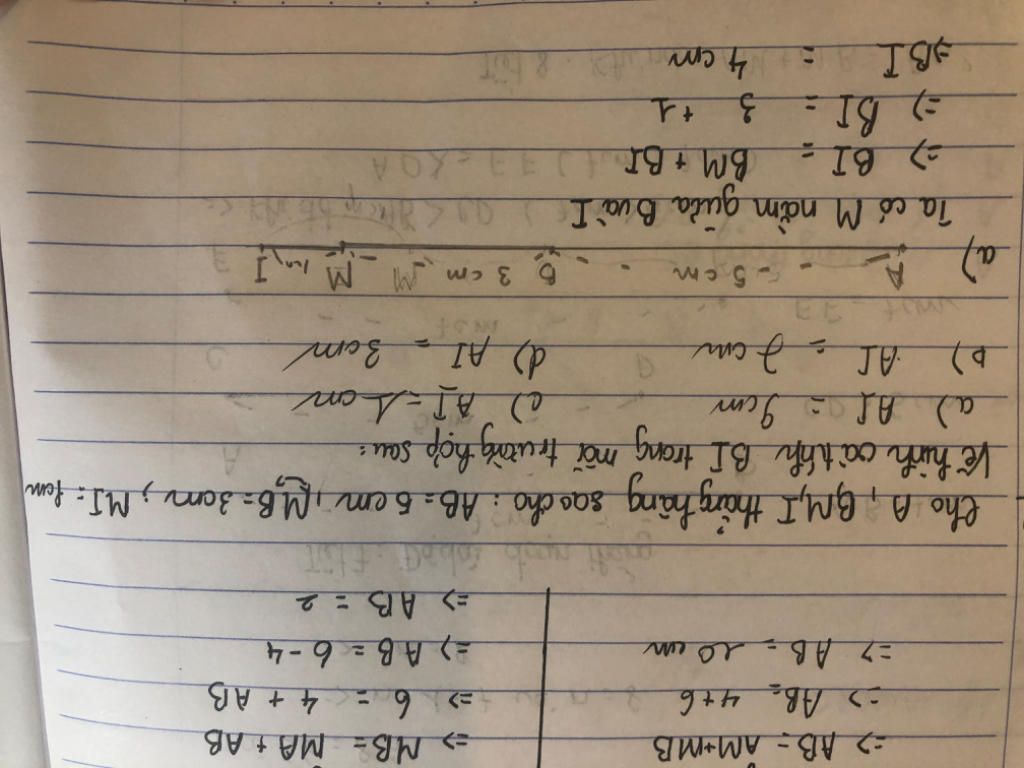 => AB = AM+MB => MB = MA + AB
=> AB = 4+6 => 6 = 4 + AB
=> AB = 10 cm => AB = 6-4
=> AB = 2
Cho A, B,M,I thẳng hàng sao cho: AB = 5 cm, MB = 3cm; MI = 1cm
Vẽ hình và tính BI trong mỗi trường hợp sau:
a) AI = 9cm c) AI = 1 cm
b) AI = 7cm d) AI = 3cm
a) A 5 cm B 3 cm M 1cm I
Ta có M nằm giữa B và I
=> BI = BM + BI
=> BI = 3 + 1
=> BI = 4 cm